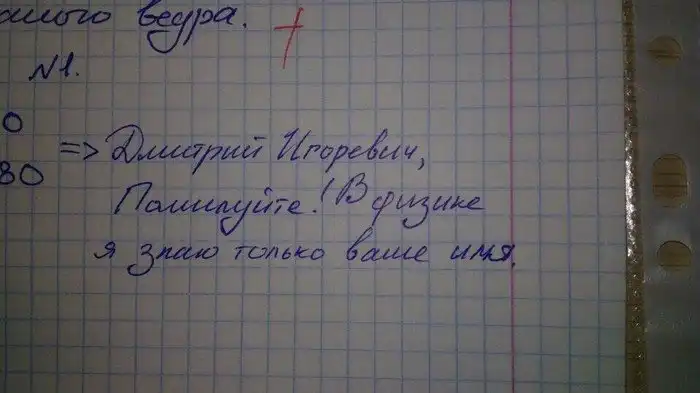 ведра.
N1.
0
80
=> Дмитрий Игоревич,
Помилуйте! В физике
я знаю только ваше имя.